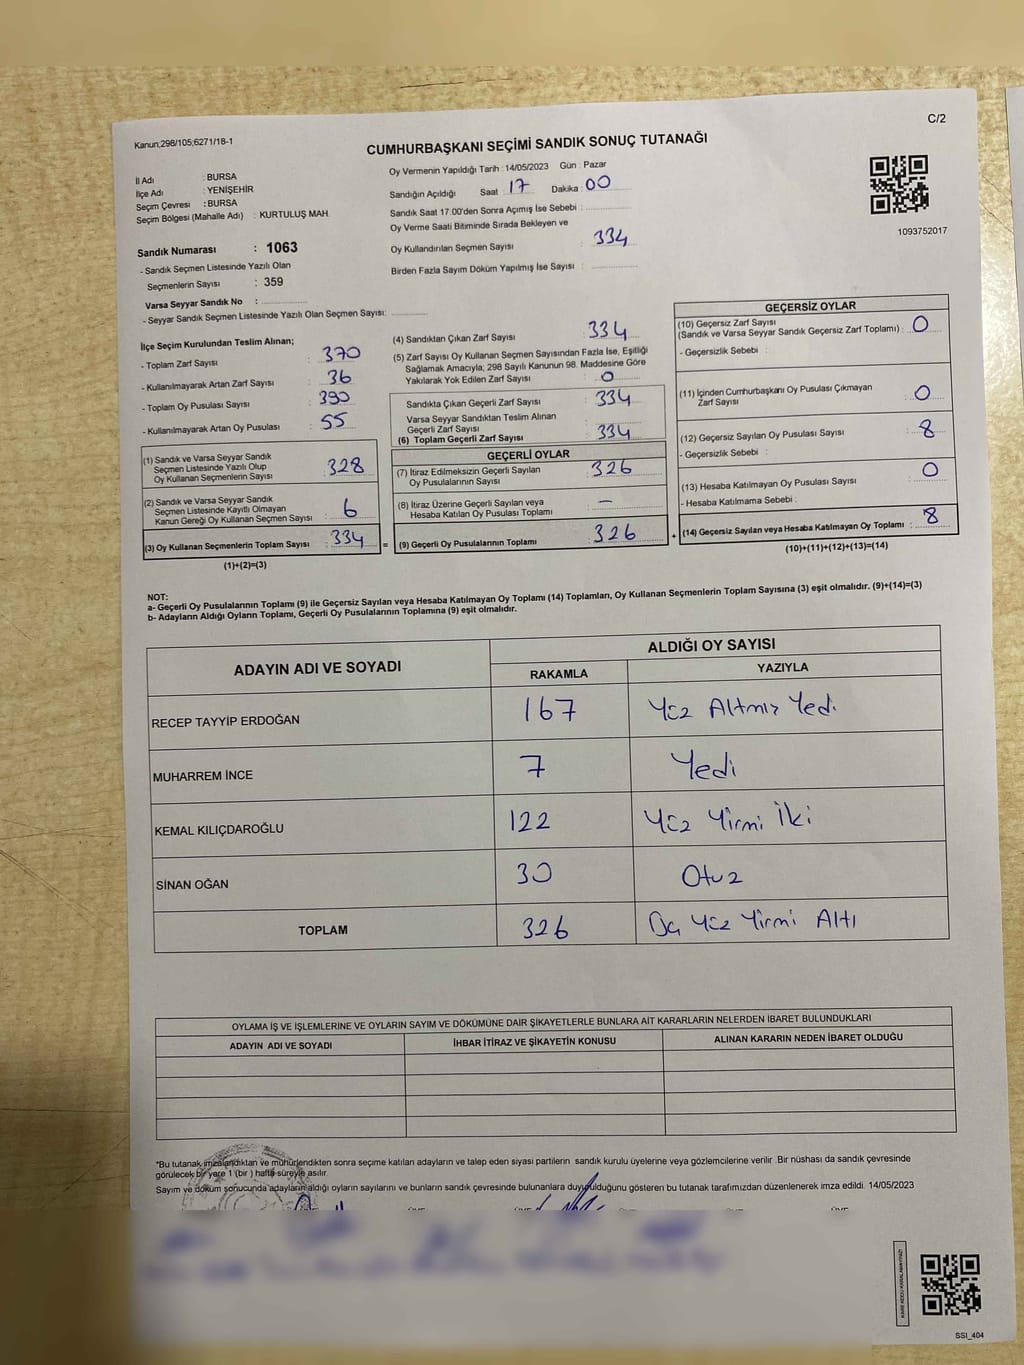 Kanun;298/105;6271/18-1
C/2
CUMHURBAŞKANI SEÇİMİ SANDIK SONUÇ TUTANAĞI
İl Adı : BURSA
İlçe Adı : YENİŞEHİR
Seçim Çevresi : BURSA
Seçim Bölgesi (Mahalle Adı) : KURTULUŞ MAH.
Oy Vermenin Yapıldığı Tarih : 14/05/2023 Gün : Pazar
Sandığın Açıldığı Saat : 17 Dakika : 00
Sandık Saat 17:00'den Sonra Açılmış İse Sebebi :
Oy Verme Saati Bitiminde Sırada Bekleyen ve
Oy Kullandırılan Seçmen Sayısı : 334
Birden Fazla Sayım Döküm Yapılmış İse Sayısı :
1093752017
Sandık Numarası : 1063
- Sandık Seçmen Listesinde Yazılı Olan
Seçmenlerin Sayısı : 359
Varsa Seyyar Sandık No :
- Seyyar Sandık Seçmen Listesinde Yazılı Olan Seçmen Sayısı:
İlçe Seçim Kurulundan Teslim Alınan;
- Toplam Zarf Sayısı : 370
- Kullanılmayarak Artan Zarf Sayısı : 36
- Toplam Oy Pusulası Sayısı : 390
- Kullanılmayarak Artan Oy Pusulası : 55
(1) Sandık ve Varsa Seyyar Sandık
Seçmen Listesinde Yazılı Olup
Oy Kullanan Seçmenlerin Sayısı : 328
(2) Sandık ve Varsa Seyyar Sandık
Seçmen Listesinde Kayıtlı Olmayan
Kanun Gereği Oy Kullanan Seçmen Sayısı : 6
(3) Oy Kullanan Seçmenlerin Toplam Sayısı : 334
(1)+(2)=(3)
(4) Sandıktan Çıkan Zarf Sayısı : 334
(5) Zarf Sayısı Oy Kullanan Seçmen Sayısından Fazla İse, Eşitliği
Sağlamak Amacıyla; 298 Sayılı Kanunun 98. Maddesine Göre
Yakılarak Yok Edilen Zarf Sayısı : 0
Sandıkta Çıkan Geçerli Zarf Sayısı : 334
Varsa Seyyar Sandıktan Teslim Alınan
Geçerli Zarf Sayısı
(6) Toplam Geçerli Zarf Sayısı : 334
GEÇERLİ OYLAR
(7) İtiraz Edilmeksizin Geçerli Sayılan
Oy Pusulalarının Sayısı : 326
(8) İtiraz Üzerine Geçerli Sayılan veya
Hesaba Katılan Oy Pusulası Toplamı : —
= (9) Geçerli Oy Pusulalarının Toplamı : 326
GEÇERSİZ OYLAR
(10) Geçersiz Zarf Sayısı
(Sandık ve Varsa Seyyar Sandık Geçersiz Zarf Toplamı) : 0
- Geçersizlik Sebebi :
(11) İçinden Cumhurbaşkanı Oy Pusulası Çıkmayan
Zarf Sayısı : 0
(12) Geçersiz Sayılan Oy Pusulası Sayısı : 8
- Geçersizlik Sebebi :
(13) Hesaba Katılmayan Oy Pusulası Sayısı : 0
- Hesaba Katılmama Sebebi :
+ (14) Geçersiz Sayılan veya Hesaba Katılmayan Oy Toplamı : 8
(10)+(11)+(12)+(13)=(14)
NOT:
a- Geçerli Oy Pusulalarının Toplamı (9) ile Geçersiz Sayılan veya Hesaba Katılmayan Oy Toplamı (14) Toplamları, Oy Kullanan Seçmenlerin Toplam Sayısına (3) eşit olmalıdır. (9)+(14)=(3)
b- Adayların Aldığı Oyların Toplamı, Geçerli Oy Pusulalarının Toplamına (9) eşit olmalıdır.
ADAYIN ADI VE SOYADI
ALDIĞI OY SAYISI
RAKAMLA YAZIYLA
RECEP TAYYİP ERDOĞAN 167 Yüz Altmış Yedi
MUHARREM İNCE 7 Yedi
KEMAL KILIÇDAROĞLU 122 Yüz Yirmi İki
SİNAN OĞAN 30 Otuz
TOPLAM 326 Üç Yüz Yirmi Altı
OYLAMA İŞ VE İŞLEMLERİNE VE OYLARIN SAYIM VE DÖKÜMÜNE DAİR ŞİKAYETLERLE BUNLARA AİT KARARLARIN NELERDEN İBARET BULUNDUKLARI
ADAYIN ADI VE SOYADI İHBAR İTİRAZ VE ŞİKAYETİN KONUSU ALINAN KARARIN NEDEN İBARET OLDUĞU
*Bu tutanak imzalandıktan ve mühürlendikten sonra seçime katılan adayların ve talep eden siyasi partilerin sandık kurulu üyelerine veya gözlemcilerine verilir. Bir nüshası da sandık çevresinde
görülecek bir yere 1 (bir) hafta süreyle asılır.
Sayım ve döküm sonucunda adayların aldığı oyların sayılarını ve bunların sandık çevresinde bulunanlara duyurulduğunu gösteren bu tutanak tarafımızdan düzenlenerek imza edildi. 14/05/2023
SSI_404